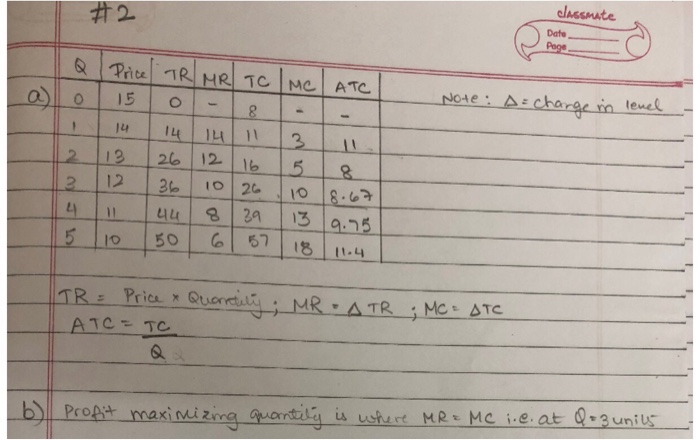 #2
classmate
Date
Page
Q Price TR MR TC MC ATC
Note: Δ = change in level
a) 0 15 0 - 8 - -
1 14 14 14 11 3 11
2 13 26 12 16 5 8
3 12 36 10 26 10 8.67
4 11 44 8 39 13 9.75
5 10 50 6 57 18 11.4
TR = Price × Quantity; MR = Δ TR ; MC = ΔTC
ATC = TC
Q
b) Profit maximizing quantity is where MR = MC i.e. at Q = 3 units